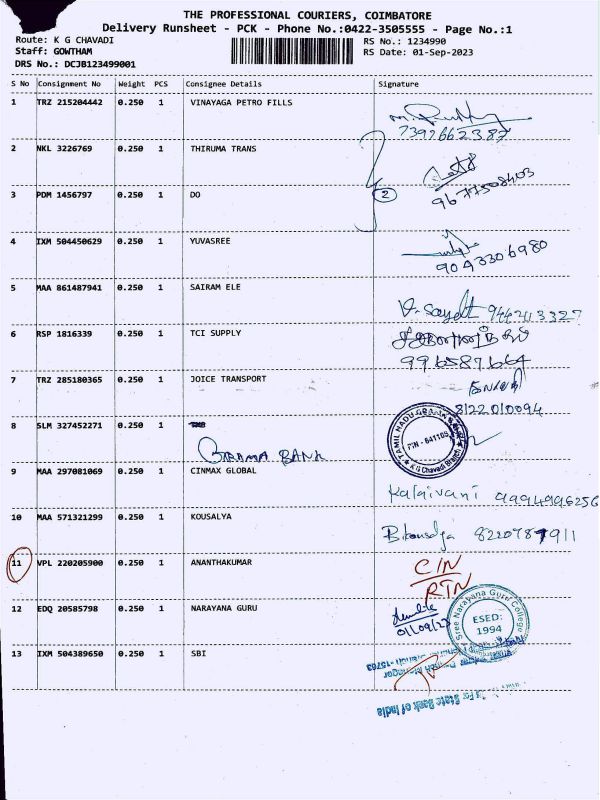 THE PROFESSIONAL COURIERS, COIMBATORE
Delivery Runsheet - PCK - Phone No.:0422-3505555 - Page No.:1
Route: K G CHAVADI
RS No.: 1234990
Staff: GOWTHAM
RS Date: 01-Sep-2023
DRS No.: DCJB123499001
S No Consignment No Weight PCS Consignee Details Signature
1 TRZ 215204442 0.250 1 VINAYAGA PETRO FILLS
7392662387
2 NKL 3226769 0.250 1 THIRUMA TRANS
2
3 PDM 1456797 0.250 1 DO
9677508403
4 IXM 504450629 0.250 1 YUVASREE
9093306980
5 MAA 861487941 0.250 1 SAIRAM ELE
6 RSP 1816339 0.250 1 TCI SUPPLY
7 TRZ 285180365 0.250 1 JOICE TRANSPORT
8122010094
8 SLM 327452271 0.250 1
GRAMA BANK
TAMIL NADU GRAMA BANK
PIN - 641105
K G Chavadi Branch
9 MAA 297081069 0.250 1 CINMAX GLOBAL
Kalaivani 9994996256
10 MAA 571321299 0.250 1 KOUSALYA
11 VPL 220205900 0.250 1 ANANTHAKUMAR
CIN
RTN
12 EDQ 20585798 0.250 1 NARAYANA GURU
01/09/23
Sree Narayana Guru College
ESED:
1994
13 IXM 504389650 0.250 1 SBI
Branch Manager
For State Bank of India